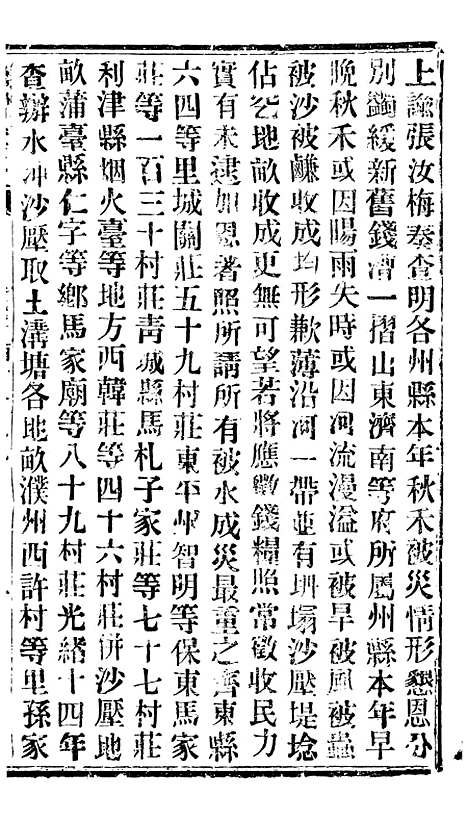 上諭張汝梅奏查明各州縣本年秋禾被災情形懇恩分
別蠲緩新舊錢漕一摺山東濟南等府所屬州縣本年早
晚秋禾或因陽雨失時或因河流漫溢或被旱被風被蟲
被沙被鹻收成均形歉薄沿河一帶並有坍塌沙壓堤埝
佔壓地畝收成更無可望若將應徵錢糧照常徵收民力
實有未逮加恩著照所請所有被水成災最重之齊東縣
六四等里城關莊五十九村莊東平州智明等保東馬家
莊等一百三十村莊青城縣馬札子家莊等七十七村莊
利津縣烟火臺等地方西韓莊等四十六村莊併沙壓地
畝蒲臺縣仁字等鄉馬家廟等八十九村莊光緒十四年
查辦水冲沙壓取土溝塘各地畝濮州西許村等里孫家